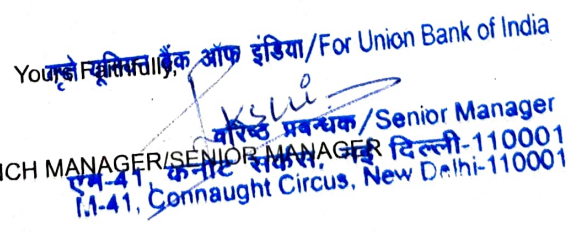 Yours Faithfully,
कृते यूनियन बैंक ऑफ इंडिया/For Union Bank of India
वरिष्ठ प्रबन्धक/Senior Manager
NCH MANAGER/SENIOR MANAGER
एम-41, कनॉट सर्कस, नई दिल्ली-110001
M-41, Connaught Circus, New Delhi-110001